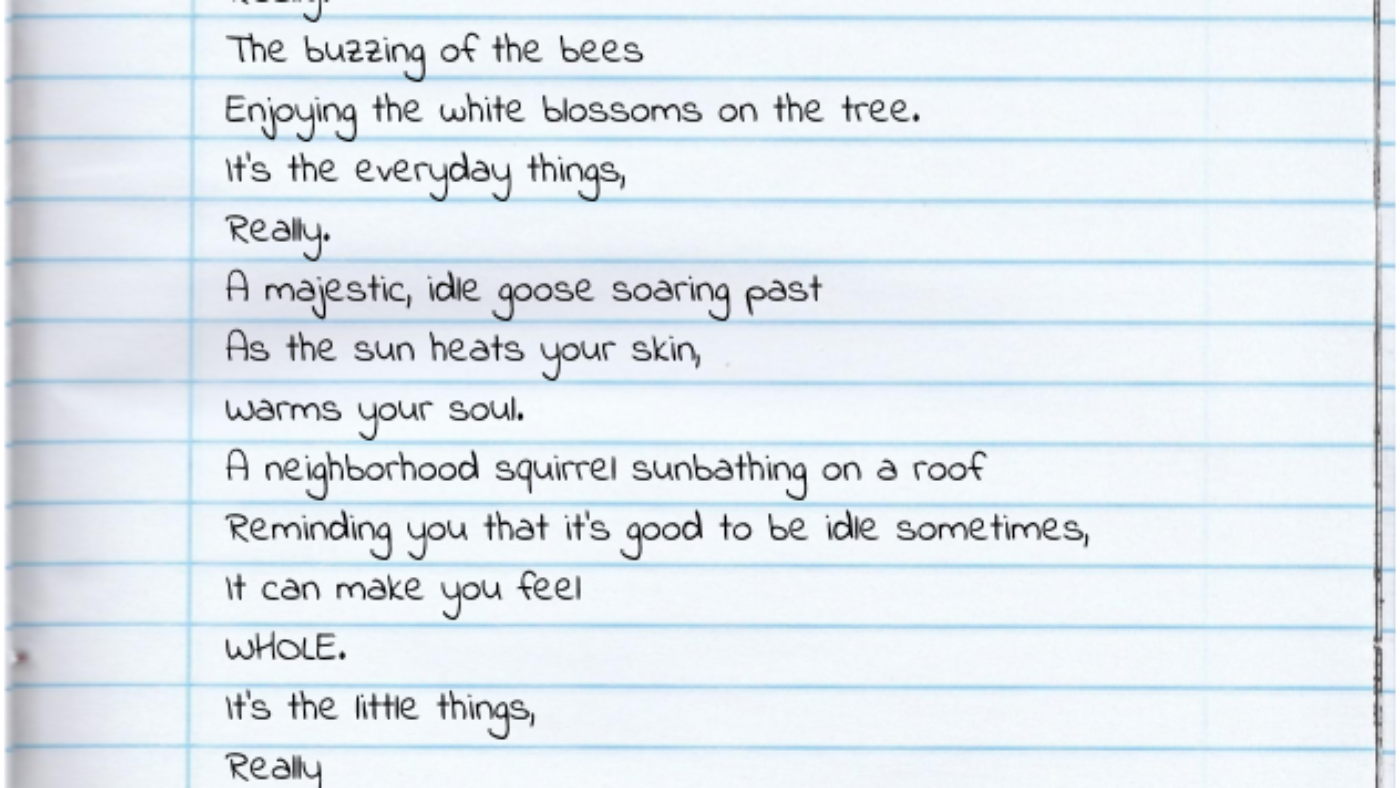 Really.
The buzzing of the bees
Enjoying the white blossoms on the tree.
It's the everyday things,
Really.
A majestic, idle goose soaring past
As the sun heats your skin,
warms your soul.
A neighborhood squirrel sunbathing on a roof
Reminding you that it's good to be idle sometimes,
It can make you feel
WHOLE.
It's the little things,
Really